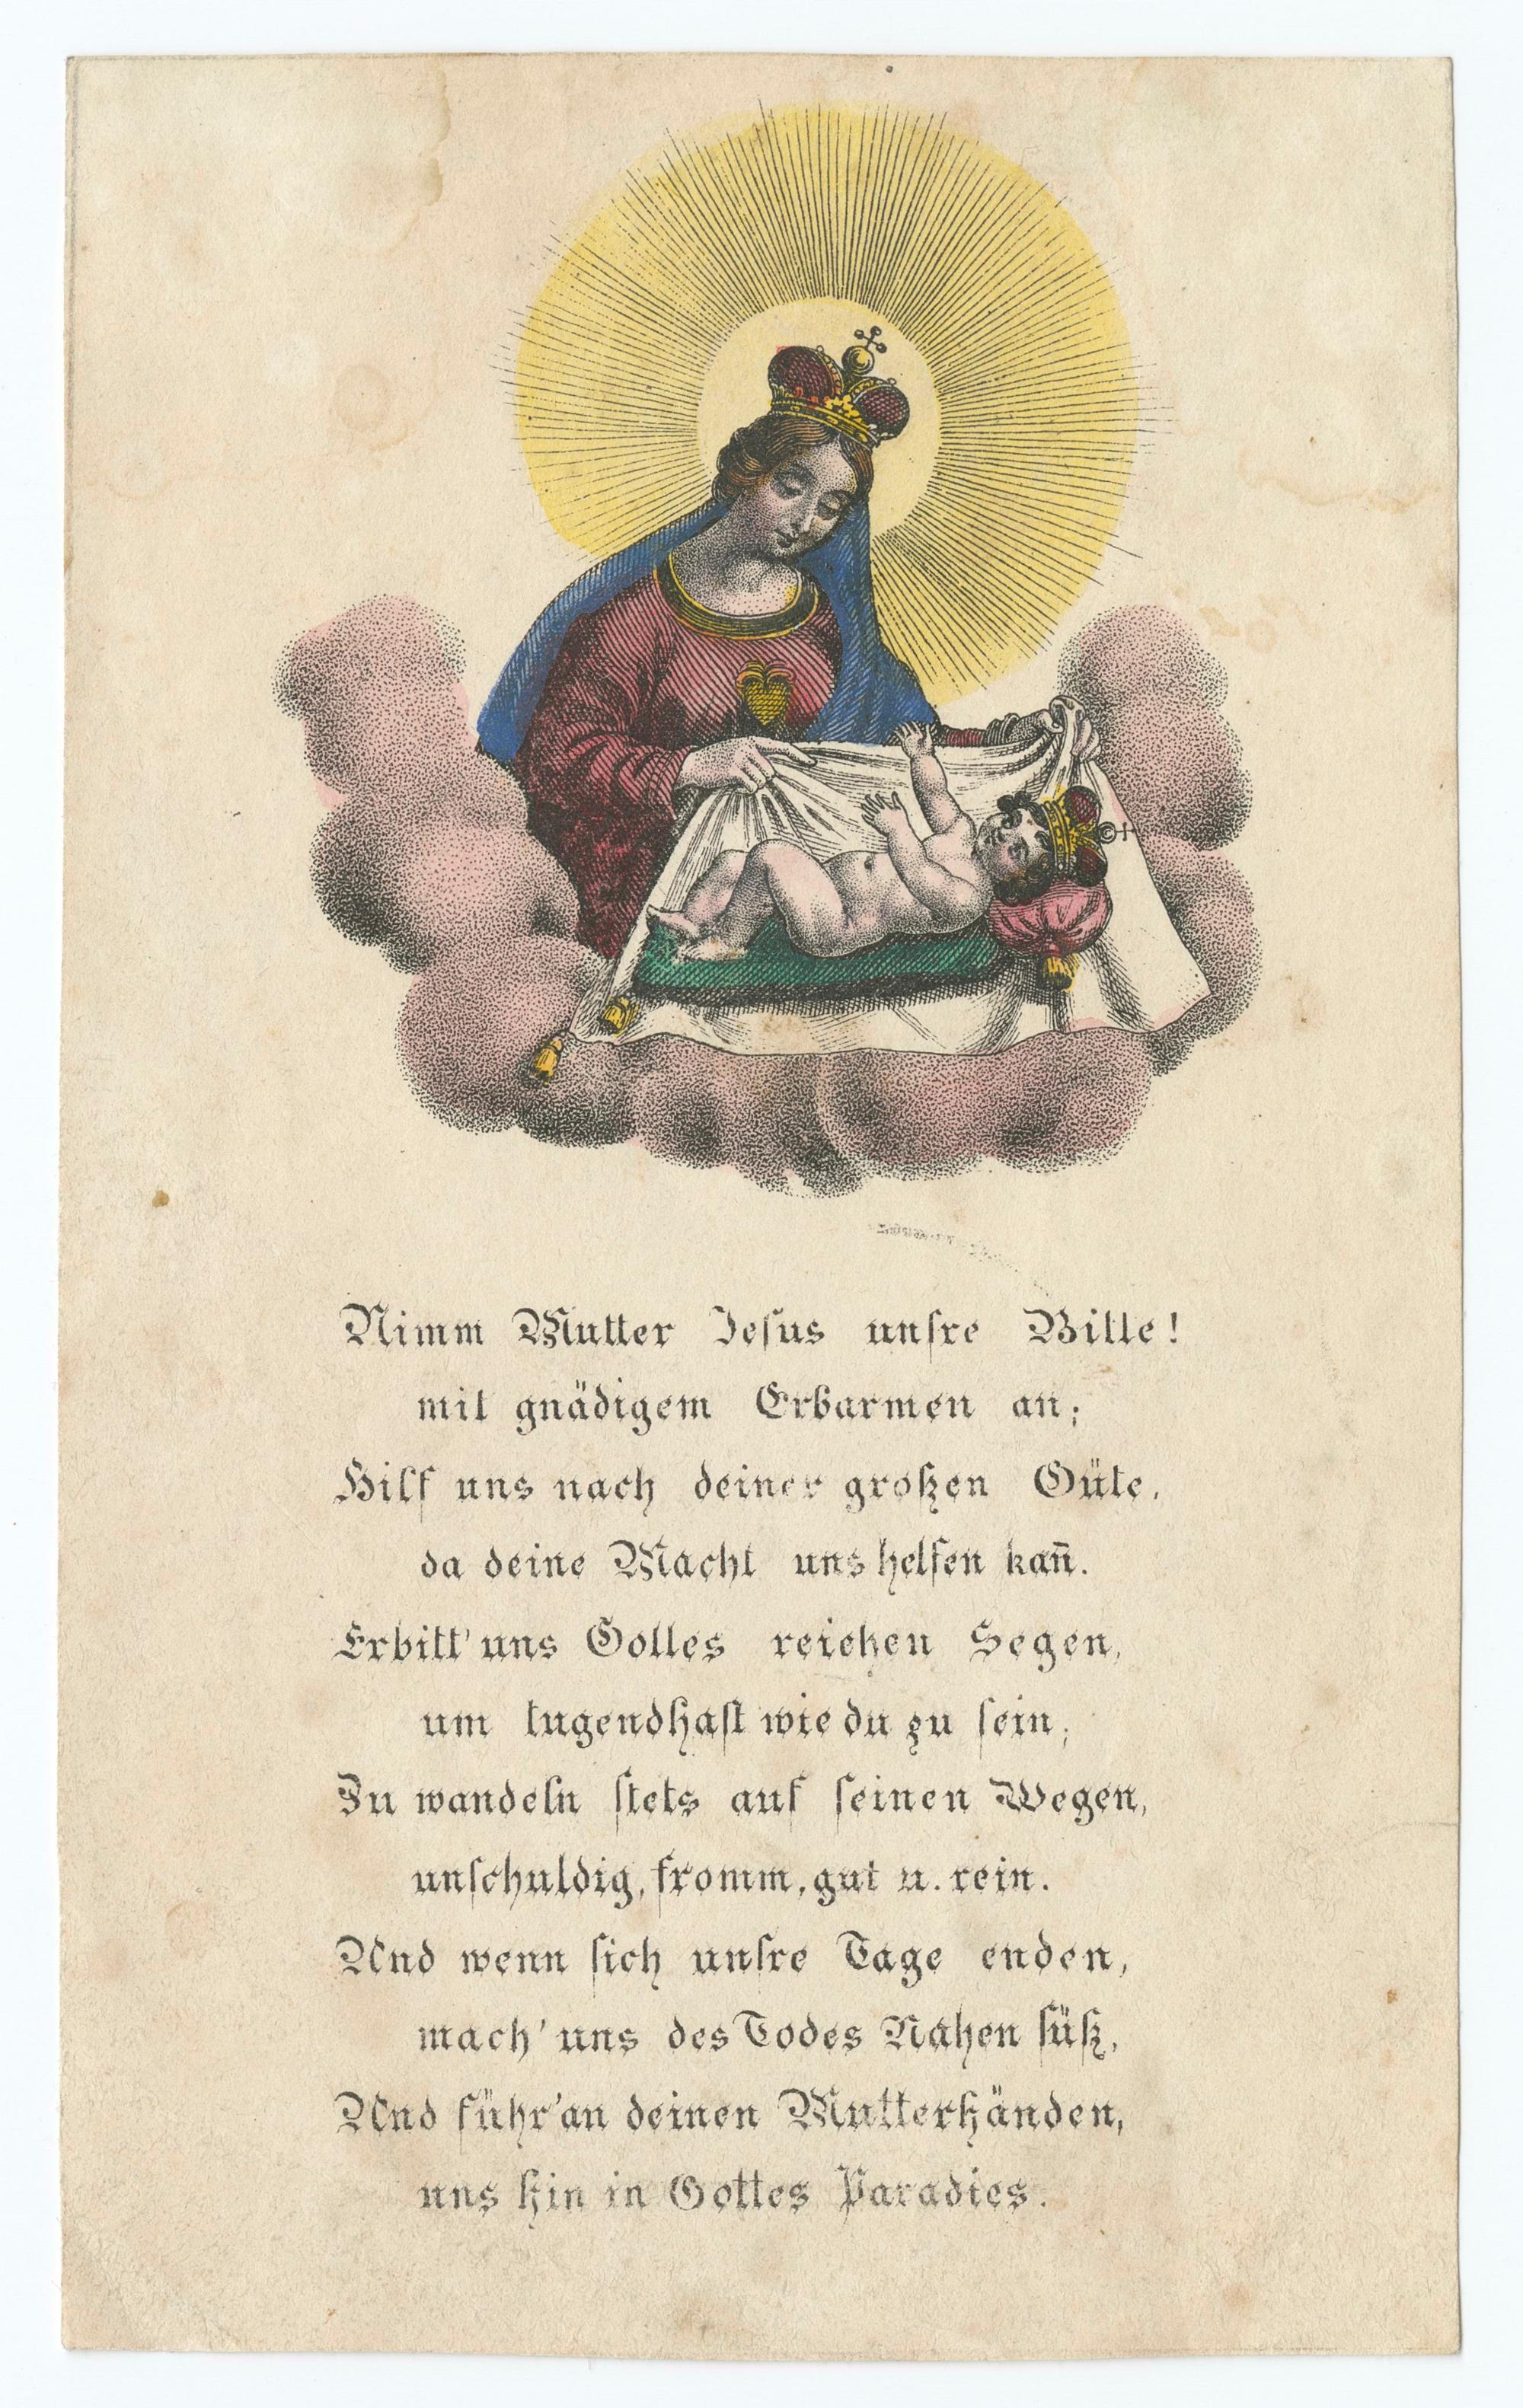 Nimm Mutter Jesus unsre Bitte!
mit gnädigem Erbarmen an;
Hilf uns nach deiner großen Güte,
da deine Macht uns helfen kan̅.
Erbitt' uns Gottes reichen Segen,
um tugendhaft wie du zu sein;
Zu wandeln stets auf seinen Wegen,
unschuldig, fromm, gut u. rein.
Und wenn sich unsre Tage enden,
mach' uns des Todes Nahen süß,
Und führ' an deinen Mutterhänden,
uns hin in Gottes Paradies.